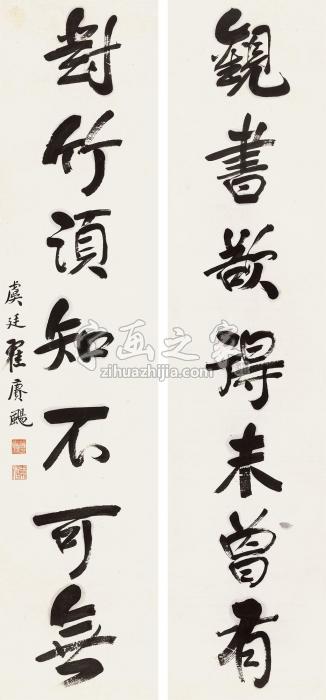 觀書歎得未曾有
對竹須知不可無
虞廷翟賡颺
字画之家
zihuazhijia.com